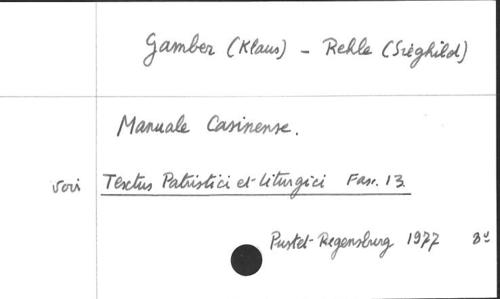 Gamber (Klaus) - Rehle (Sieghild)
Manuale Casinense.
voir Textus Patristici et Liturgici Fasc. 13.
Pustet-Regensburg 1977 8°